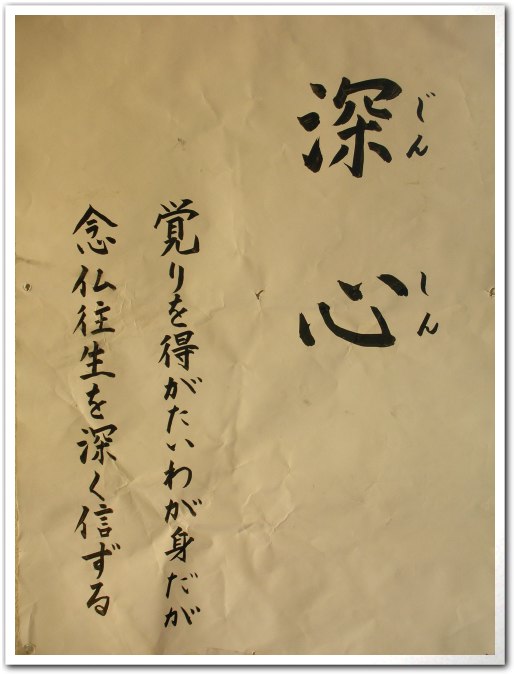 深心
じんしん
覚りを得がたいわが身だが
念仏往生を深く信ずる